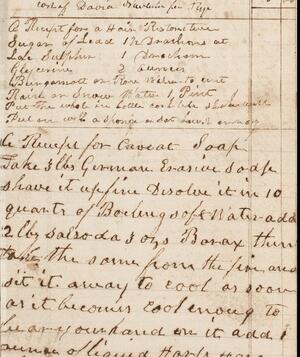 cost of David
A Receipt for a Hair Restorative
Sugar of Lead 1½ Drachms at
Lac Sulphur 1 Drachm
Glycerine 2 ounces
Bergamott or Rose Water to cent
Rain or Snow Water 1 Pint
Put the whole in bottle cork
Put on with a sponge
A Receipt for Caveat Soap
Take 3 lbs German Erasive soap
shave it up fine Disolve it in 10
quarts of Boiling soft Water add
2 lbs salsoda 3 ozs Borax then
take the same from the fire and
sit it away to cool as soon
as it becomes cool enoug to
bear your hand in it add 1
ounce of liquid Harts horn